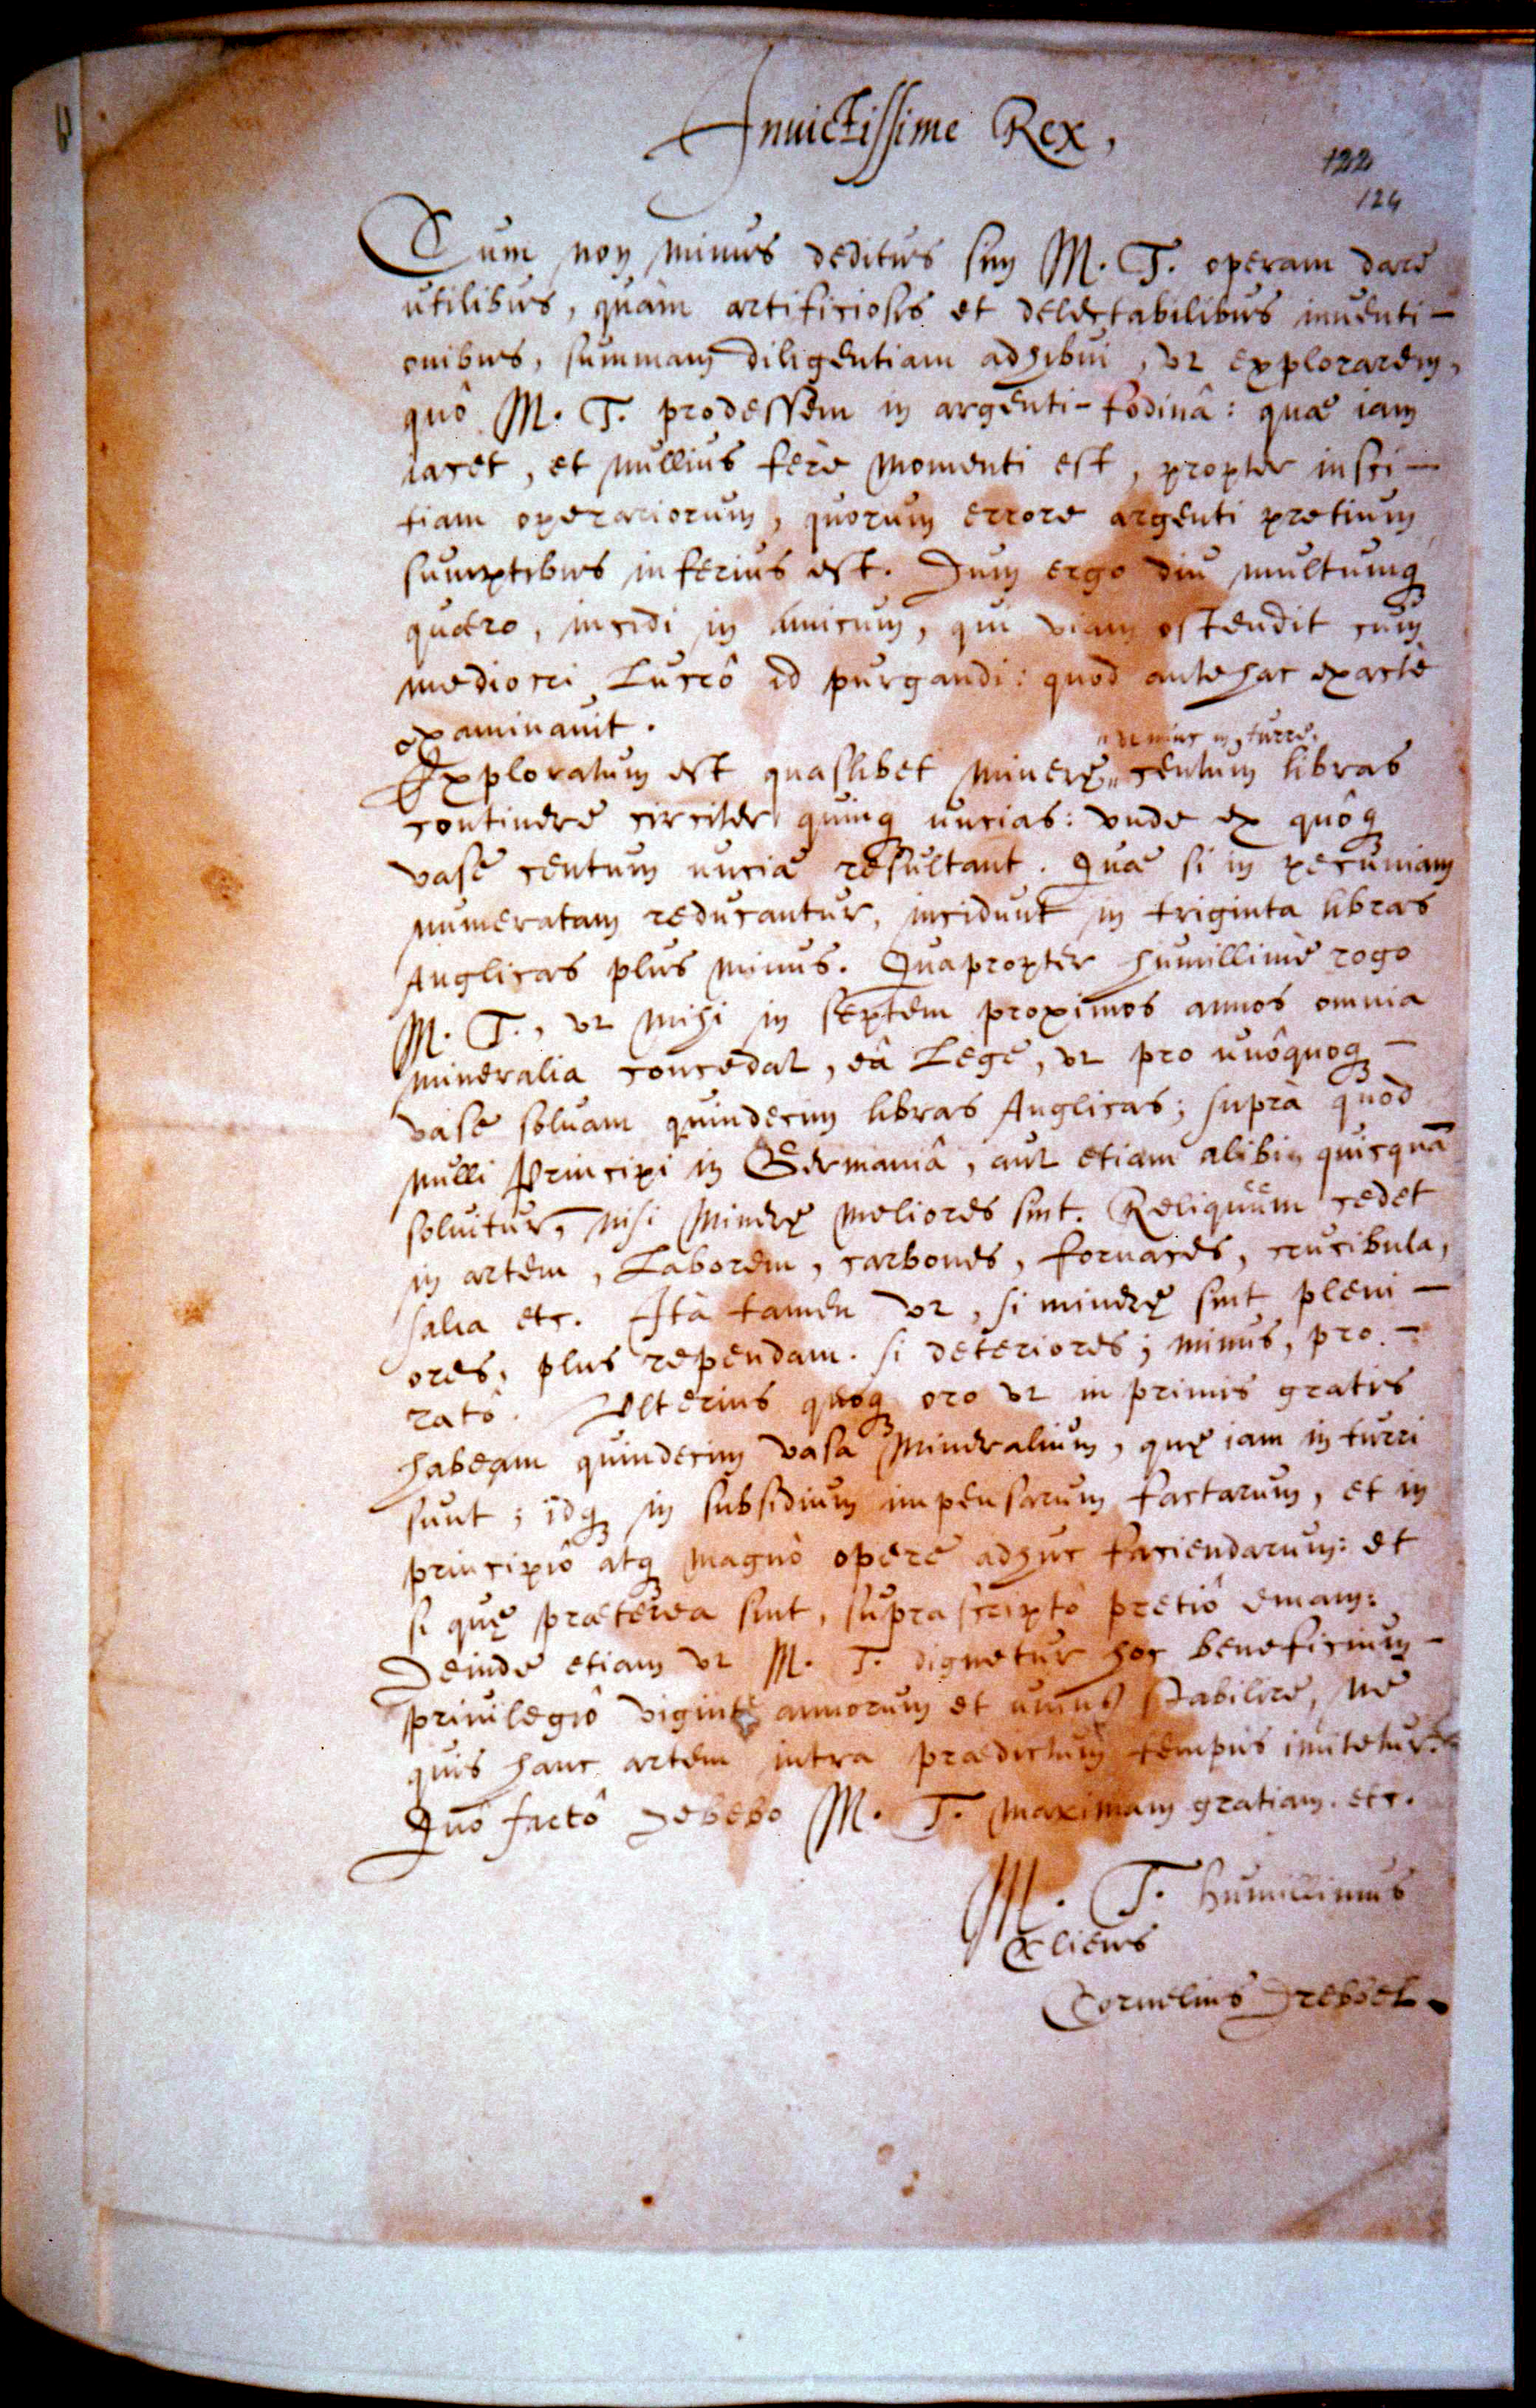 Inuictissime Rex,
122
124
Cum non minus deditus sim M. T. operam dare
utilibus, quàm artificiosis et delectabilibus inuenti-
onibus, summam diligentiam adhibui, ut explorarem,
quô M. T. prodessem in argenti-fodinâ: quæ iam
iacet, et nullius ferè momenti est, propter insci-
tiam operariorum, quorum errore argenti pretium
sumptibus inferius est. Dum ergo diu multumq
quæro, incidi in amicum, qui viam ostendit cum
mediocri Lucrô id purgandi: quod antehac exactè
examinauit.
nunc in turre.
Exploratum est quaslibet minerę centum libras
continere circiter quinq uncias: vnde ex quôq
vase centum unciæ resultant. Quæ si in pecuniam
numeratam reducantur, incidunt in triginta libras
Anglicas plus minus. Quapropter humillimè rogo
M. T., ut mihi in septem proximos annos omnia
mineralia concedat, eâ Lege, ut pro unôquoq
vase soluam quindecim libras Anglicas; suprà quod
nulli Principi in Germaniâ, aut etiam alibi quicquã
soluitur, nisi minerę meliores sint. Reliquum cedet
in artem, Laborem, carbones, fornaces, crucibula,
salia etc. Ità tamen ut, si minerę sint pleni-
ores, plus rependam. si deteriores; minus, pro-
ratô. Vlterius quoq oro ut in primis gratis
habeam quindecim vasa Mineralium, quę iam in turri
sunt; idq in subsidium impensarum factarum, et in
principiô atq magnò opere adhuc faciendarum: et
si quę præterea sint, supra scriptô pretiô emam:
Deinde etiam ut M. T. dignetur hoc beneficium
priuilegiô viginti annorum et unius stabilire, ne
quis hanc artem intra prædictum tempus imitetur.
Quô factô debebo M. T. maximam gratiam. etc.
M. T. humillimus
Cliens
Cornelius Drebbel.